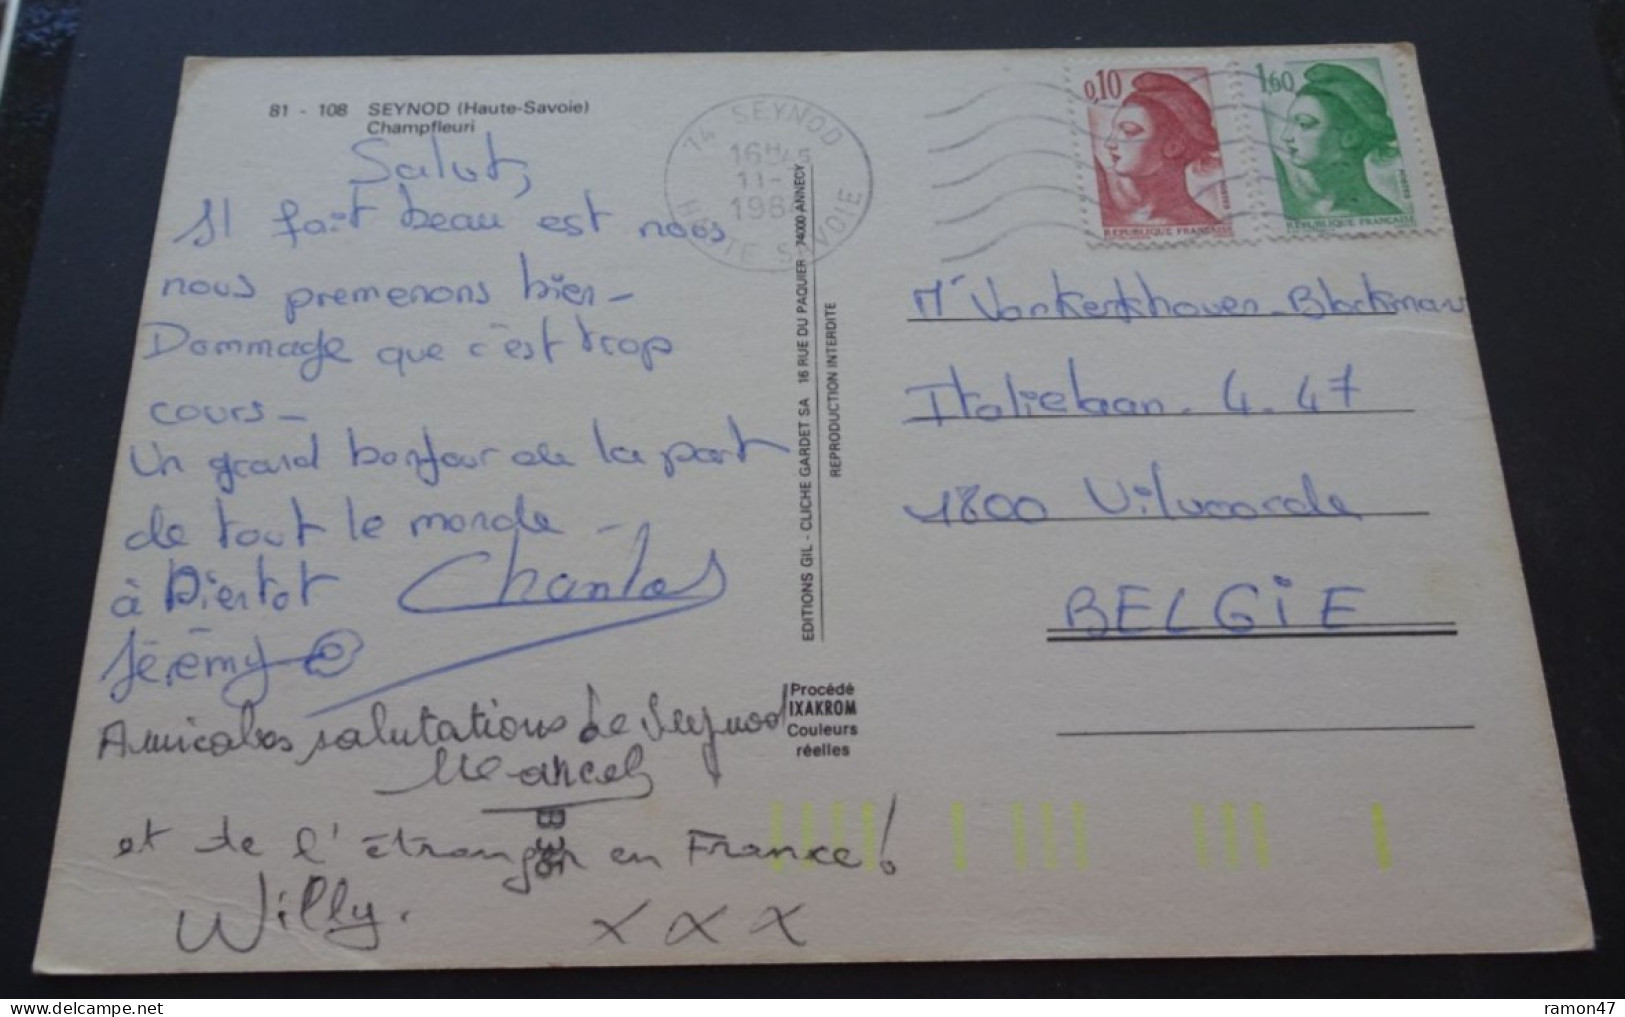 81 - 108 SEYNOD (Haute-Savoie)
Champfleuri
74 SEYNOD
16H45
11-
HAUTE SAVOIE
0,10
RÉPUBLIQUE FRANÇAISE
1,60
RÉPUBLIQUE FRANÇAISE
Salut,
Il fait beau est nous
nous premenons bien -
Dommage que c'est trop
cours -
Un grand bonjour de la part
de tout le monde -
à Bientot Chantal
Jérémy
Amicales salutations de Seynod
Marcel
et de l'étranger en France!
Willy. x x x
B 36
EDITIONS GIL - CLICHE GARDET SA 16 RUE DU PAQUIER - 74000 ANNECY
REPRODUCTION INTERDITE
Procédé
IXAKROM
Couleurs
réelles
Mr Vankerkhoven-Blockmans
Italielaan. 4. 47
1800 Vilvoorde
BELGIE
ramon47